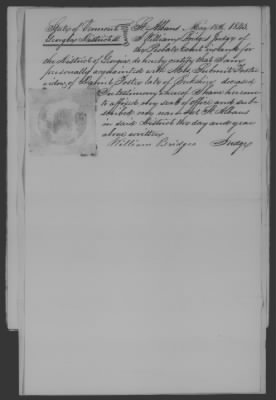 State of Vermont } St Albans May 15th 1843.
Georgia District SS } I William Bridges Judge of
the Probate Court in and for
the District of Georgia do hereby certify that I am
personally acquainted with Mrs. Submit Foster
widow of Foster late of deceased
In testimony whereof I have hereunto
affixed my seal of office and sub-
scribed my name at St Albans
in said District this day and year
above written
William Bridges Judge